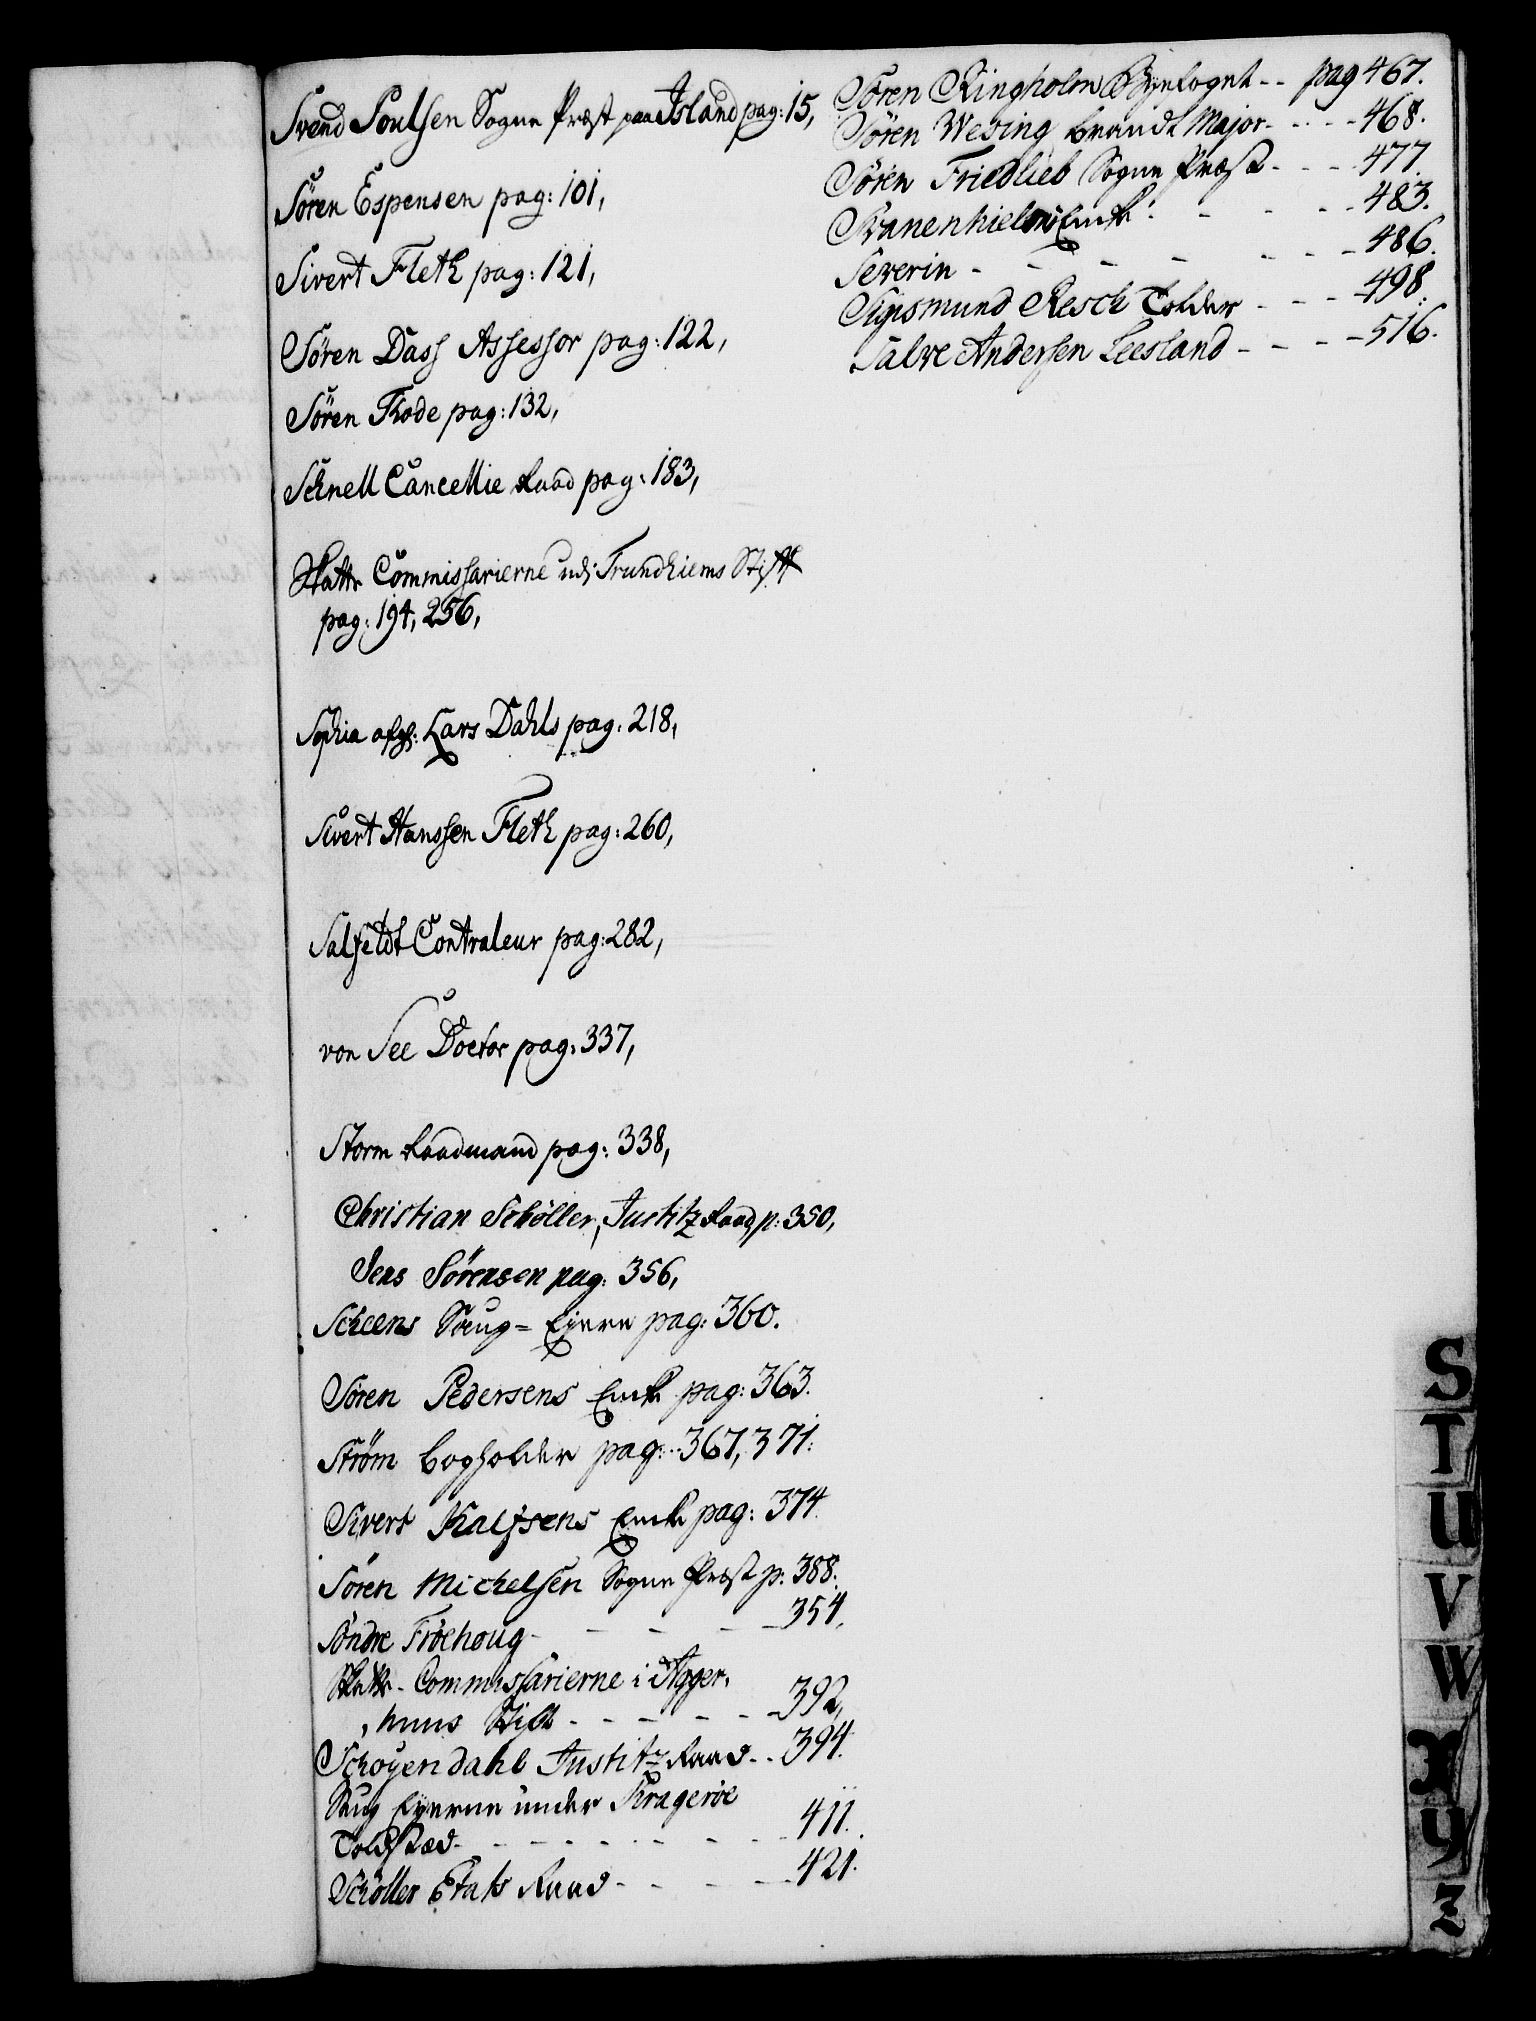 Svend Poulsen Sogne Præst paa Island pag: 15,
Sören Espensen pag: 101,
Sivert Fleth pag: 121,
Sören Dass Assessor pag: 122,
Sören Thode pag: 132,
Schnell Cancellie Raad pag: 183,
Skatte Commissarierne udi Trundhiems Stift
pag: 194, 256,
Sophia afg: Lars Dahls pag: 218,
Sivert Hanssen Fleth pag: 260,
Salfeldt Contraleur pag: 282,
von See Doctor pag: 337,
Storm Raadmand pag: 338,
Christian Schøller, Justitz Raad p: 350,
Jens Sörensen pag: 356,
Scheens Saug= Eyere pag: 360.
Sören Pedersens Enke pag: 363.
Ström bogholder pag: 367, 371.
Sivert Kalfsens Enke pag: 374.
Sören Michelsen Sogne Præst p: 388.
Söndre Fröehoug - - - - 354.
Skatte-Commissarierne i Agger,
,huus Stift - - - - - 392,
Schoyendahl Justitz Raad - - 394.
Saug Eyerne under Kragerøe
Toldsted - - - - - - - 411.
Schöller Etats Raad - - - - 421.
Sören Ringholm Byefoget - - pag 467.
Sören Wesing brandt Major - - - - 468.
Sören Friedlieb Sogne Præst - - - - 477.
Svanenhielms Enke - - - - 483.
Severin - - - - - - - 486.
Sigismund Resch Tolder - - - - 498.
Salve Andersen Leesland - - - - 516.
S
T
U
V
W
X
Y
Z